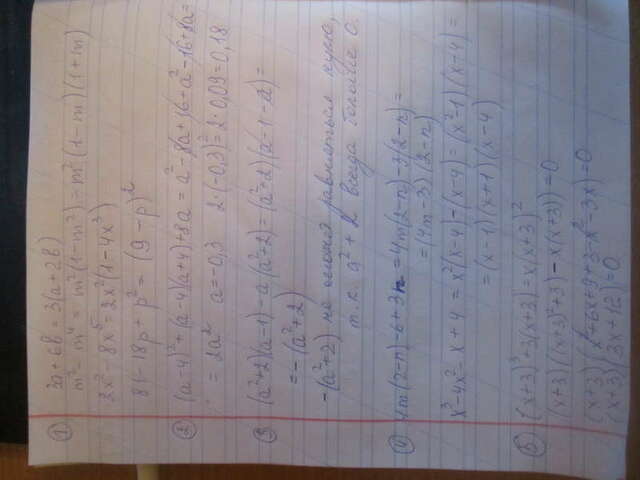 ① 3a + 6b = 3(a + 2b)
m² - m⁴ = m²(1 - m²) = m²(1 - m)(1 + m)
2x² - 8x⁵ = 2x²(1 - 4x³)
81 - 18p + p² = (9 - p)²
② (a - 4)² + (a - 4)(a + 4) + 8a = a² - 8a + 16 + a² - 16 + 8a =
= 2a² a = -0,3 2·(-0,3)² = 2·0,09 = 0,18
③ (a² + 2)(a - 1) - a(a² + 2) = (a² + 2)(a - 1 - a) =
= -(a² + 2)
-(a² + 2) не может равняться нулю,
т.к. a² + 2 всегда больше 0.
④ 4m(2 - n) - 6 + 3n = 4m(2 - n) - 3(2 - n) =
= (4m - 3)(2 - n)
x³ - 4x² - x + 4 = x²(x - 4) - (x - 4) = (x² - 1)(x - 4) =
= (x - 1)(x + 1)(x - 4)
⑤ (x + 3)³ + 3(x + 3) = x(x + 3)²
(x + 3)((x + 3)² + 3) - x(x + 3)) = 0
(x + 3)(x² + 6x + 9 + 3 - x² - 3x) = 0
(x + 3)(3x + 12) = 0